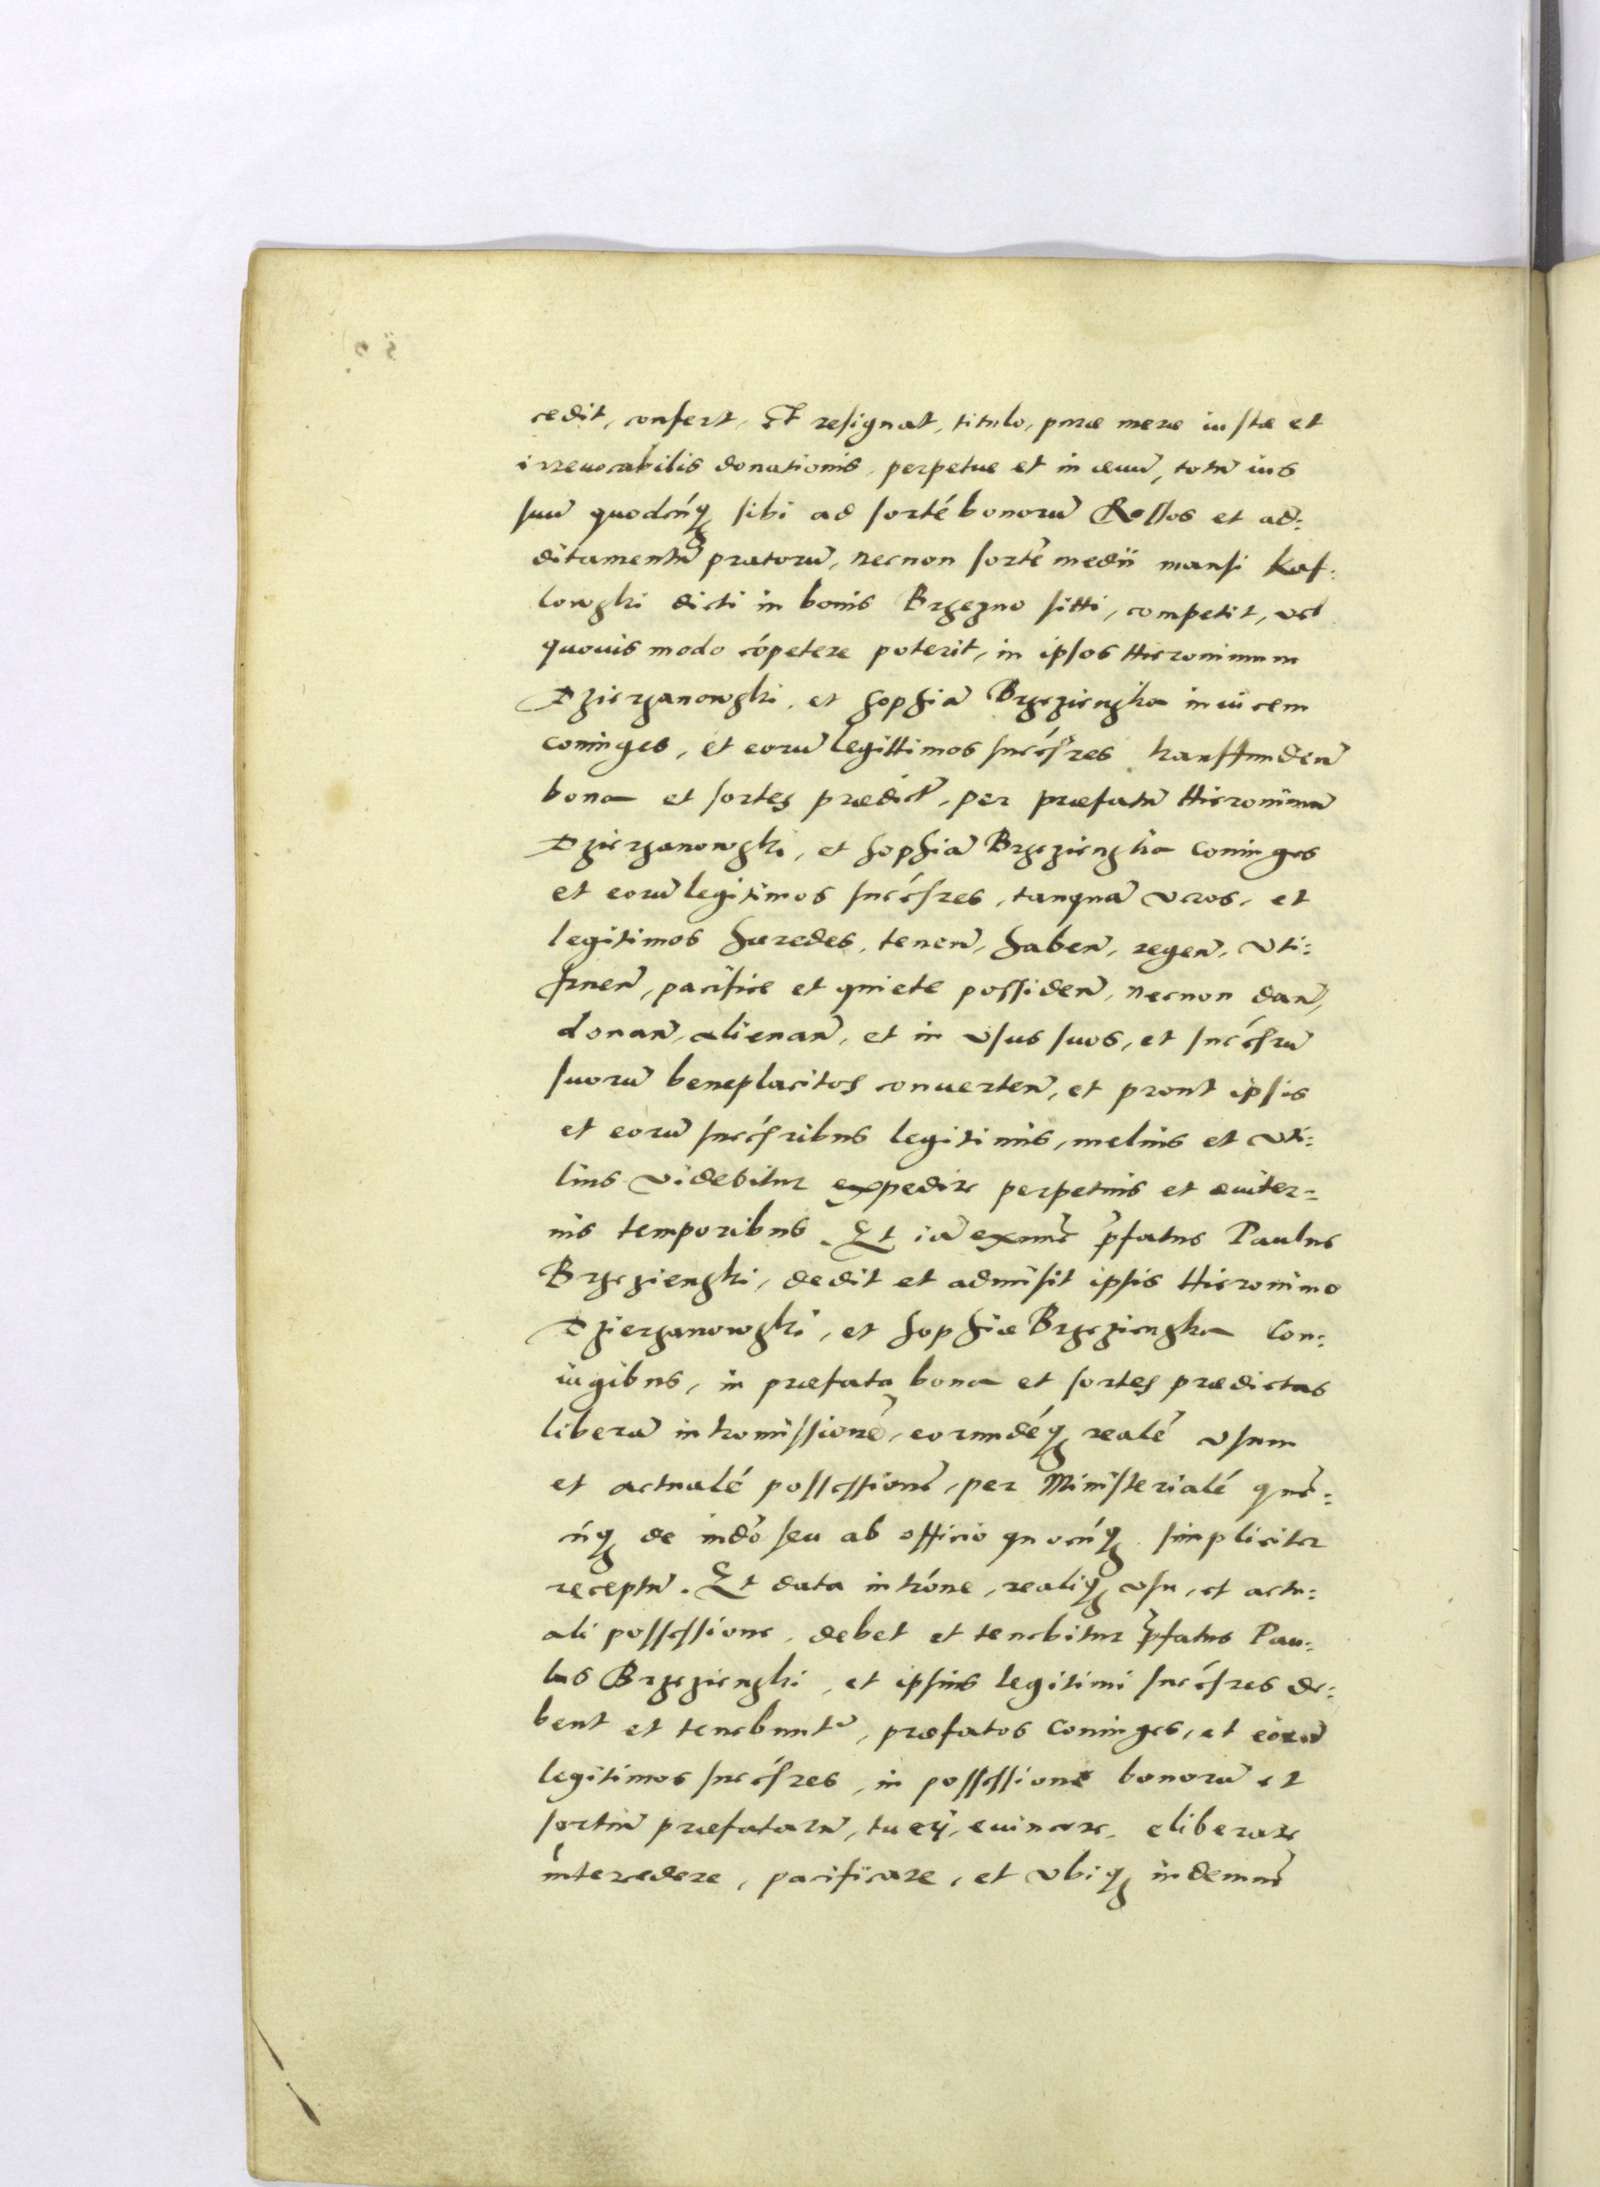 cedit, confert, Et resignat, titulo, puræ meræ iustæ et
irreuocabilis donationis, perpetuæ et in æuū, totū ius
suū quodcūq; sibi ad sortē bonorū Rossos et ad:
ditamentū pratorū, necnon sortē medii mansi Kas:
lowski dicti in bonis Brzezno sitti, competit, vel
quouis modo cōpetere poterit, in ipsos Hieronimum
Dzierzanowski, et Sophiā Brzezienska inuicem
coniuges, et eorū legittimos succēsres, transfundeñ
bona et sortes prædict̄, per præfatū Hieronimū
Dzierzanowski, et Sophiā Brzezienska coniuges
et eorū legitimos succēsres, tanquā veros, et
legitimos hæredes, teneñ, habeñ, regeñ, vti:
frueñ, pacifice et quiete possideñ, necnon dañ,
donañ, alienañ, et in vsus suos, et succēsrū
suorū beneplacitos conuerteñ, et prout ipsis
et eorū succēsribus legitimis, melius et vti:
lius videbitur expedire perpetuis et æuiter:
nis temporibus. Et iā exnūc p̄fatus Paulus
Brzezienski, dedit et admisit ipsis Hieronimo
Dzierzanowski, et Sophiæ Brzezienska Con:
iugibus, in præfata bona et sortes prædictas
liberā intromissionē, eorundēq; realē vsum
et actualē possessionē, per Ministerialē quē:
cūq; de indō seu ab officio quocūq; simpliciter
receptū. Et data intrōne, realiq; vsu, et actu:
ali possessione, debet et tenebitur p̄fatus Pau:
lus Brzezienski, et ipsius legitimi succēsres de:
bent et tenebunt᷑, præfatos Coniuges, et eorū
legitimos succēsres, in possessione bonorū et
sortiū præfatarū, tueri, euincere, eliberare
intercedere, pacificare, et vbiq; indemnē